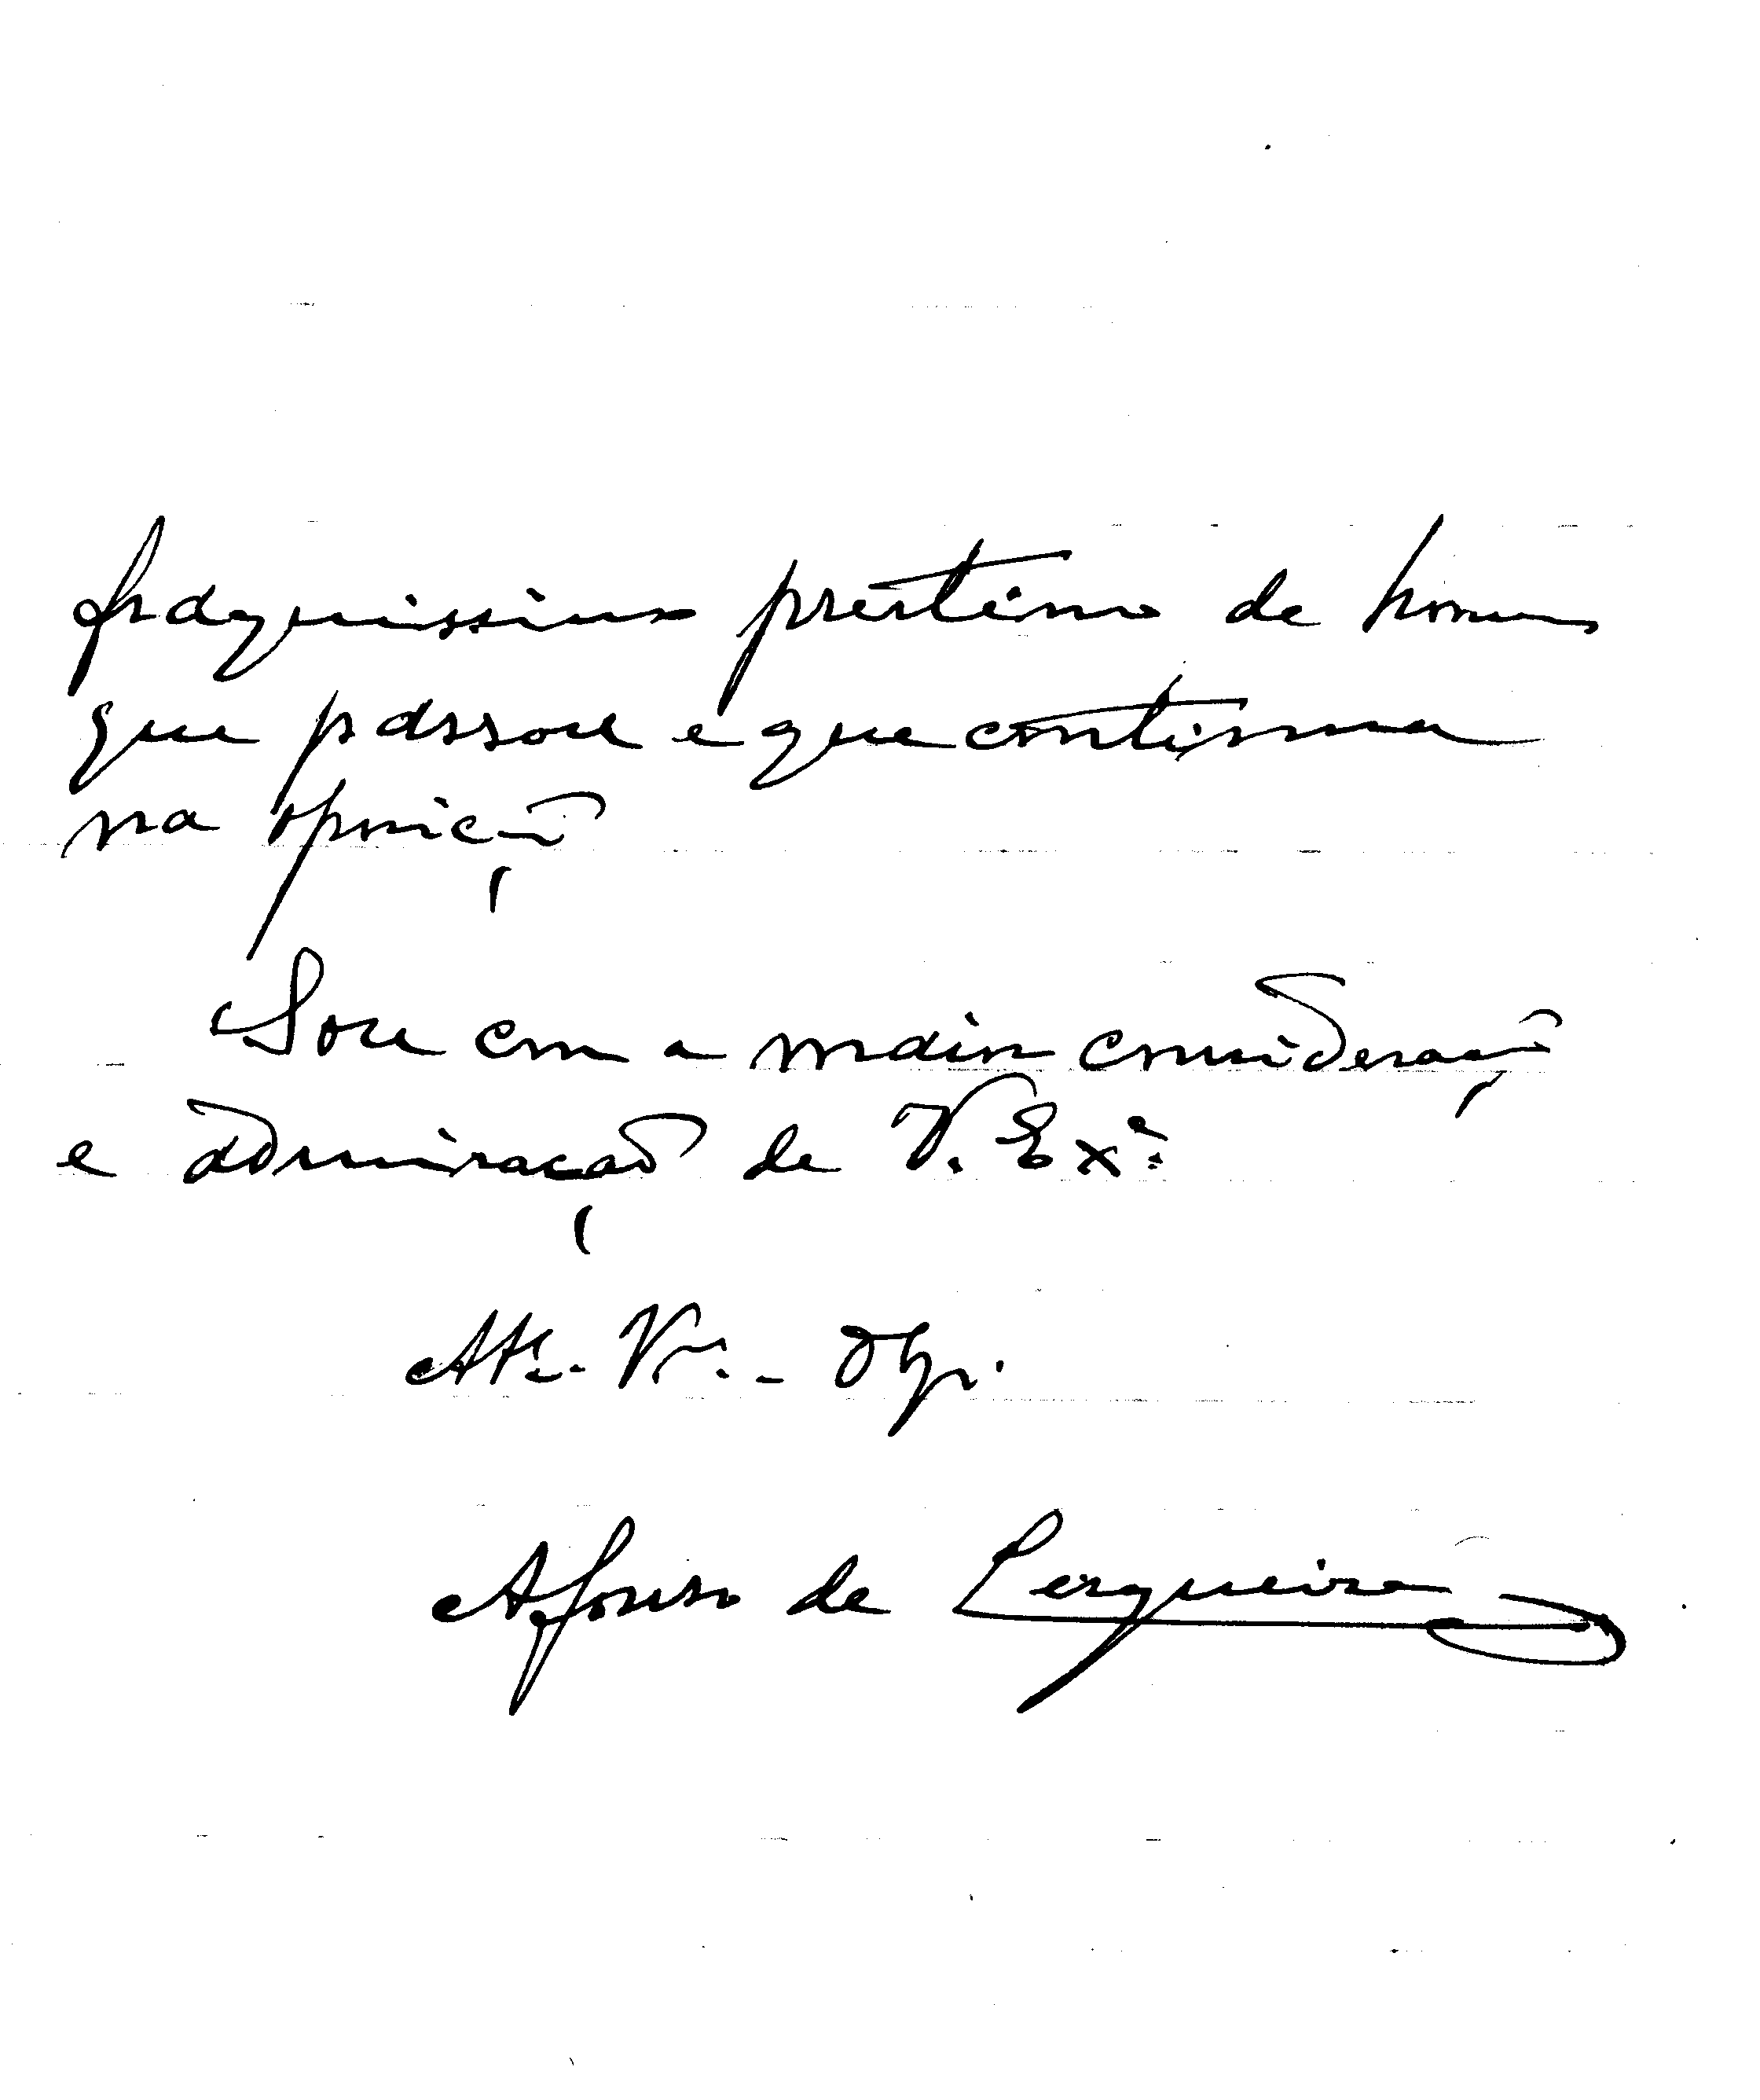 fraquissimo préstimo de homem
que passou e que continua
na oposição
Sou com a maior consideração
e admiração de V. Exª
Attº. Vor. Obgº.
Afonso de Cerqueira